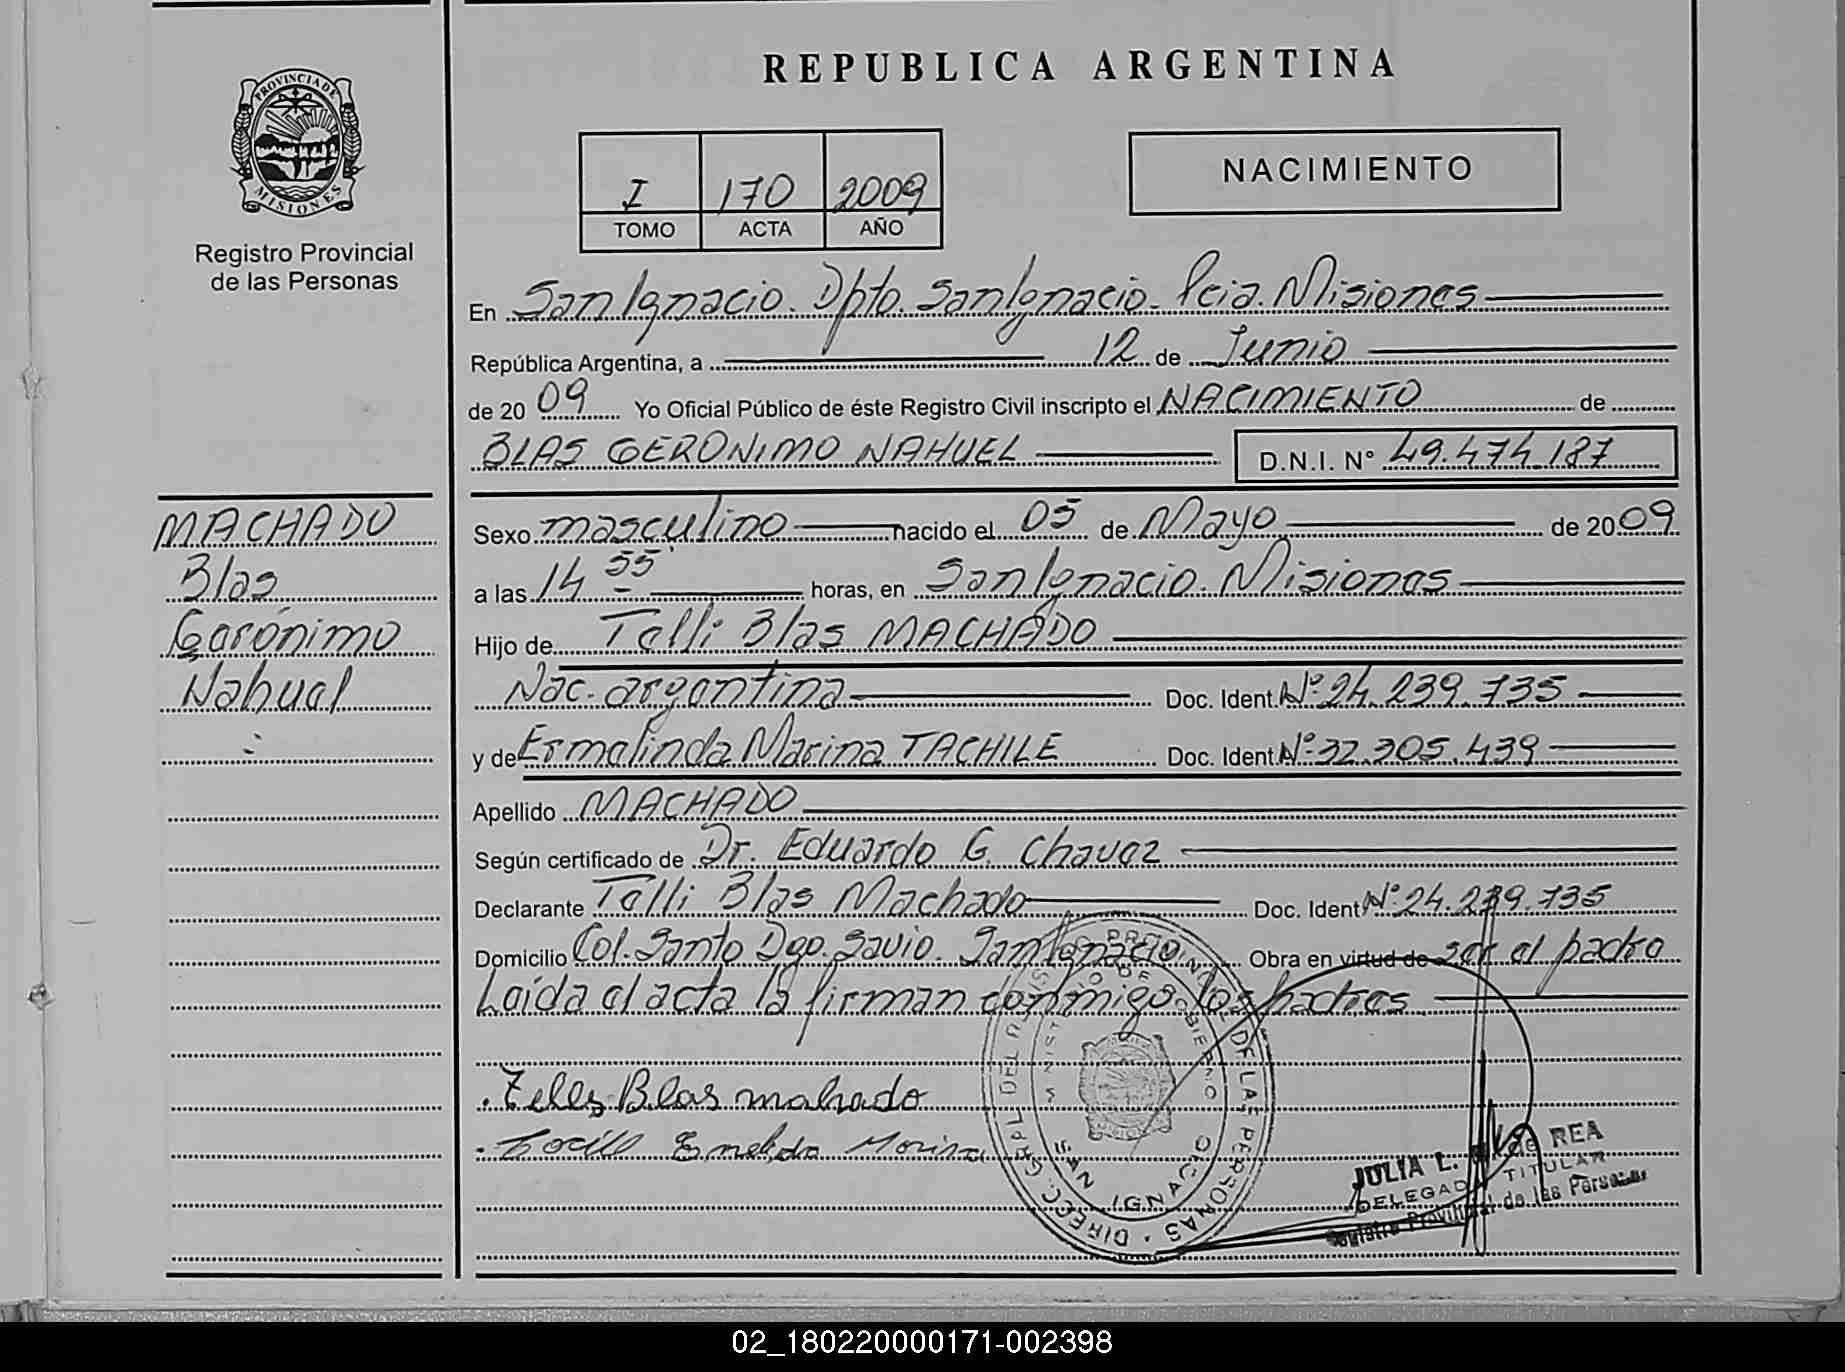 REPUBLICA ARGENTINA
PROVINCIA DE MISIONES
Registro Provincial
de las Personas
I 170 2009
TOMO ACTA AÑO
NACIMIENTO
En San Ignacio. Dpto. San Ignacio. Pcia. Misiones
República Argentina, a 12 de Junio
de 20 09 Yo Oficial Público de éste Registro Civil inscripto el NACIMIENTO de
BLAS GERONIMO NAHUEL D.N.I. N° 49.474.187
MACHADO
Blas
Gerónimo
Nahuel
Sexo masculino nacido el 05 de Mayo de 2009
a las 14 55' horas, en San Ignacio. Misiones
Hijo de Telli Blas MACHADO
Nac. argentina Doc. Ident. N° 24.239.735
y de Ermelinda Marina TACHILE Doc. Ident. N° 32.305.439
Apellido MACHADO
Según certificado de Dr. Eduardo G. Chavez
Declarante Telli Blas Machado Doc. Ident. N° 24.239.735
Domicilio Col. Santo Dgo. Savio. San Ignacio Obra en virtud de ser el padre
Leída el acta la firman conmigo los padres
Blas mahado
Marina
DIRECC. GRAL DEL REGISTRO PROVINCIAL DE LAS PERSONAS
MINISTERIO DE GOBIERNO
SAN IGNACIO
JULIA L. de REA
DELEGADA TITULAR
Registro Provincial de las Personas
02_180220000171-002398